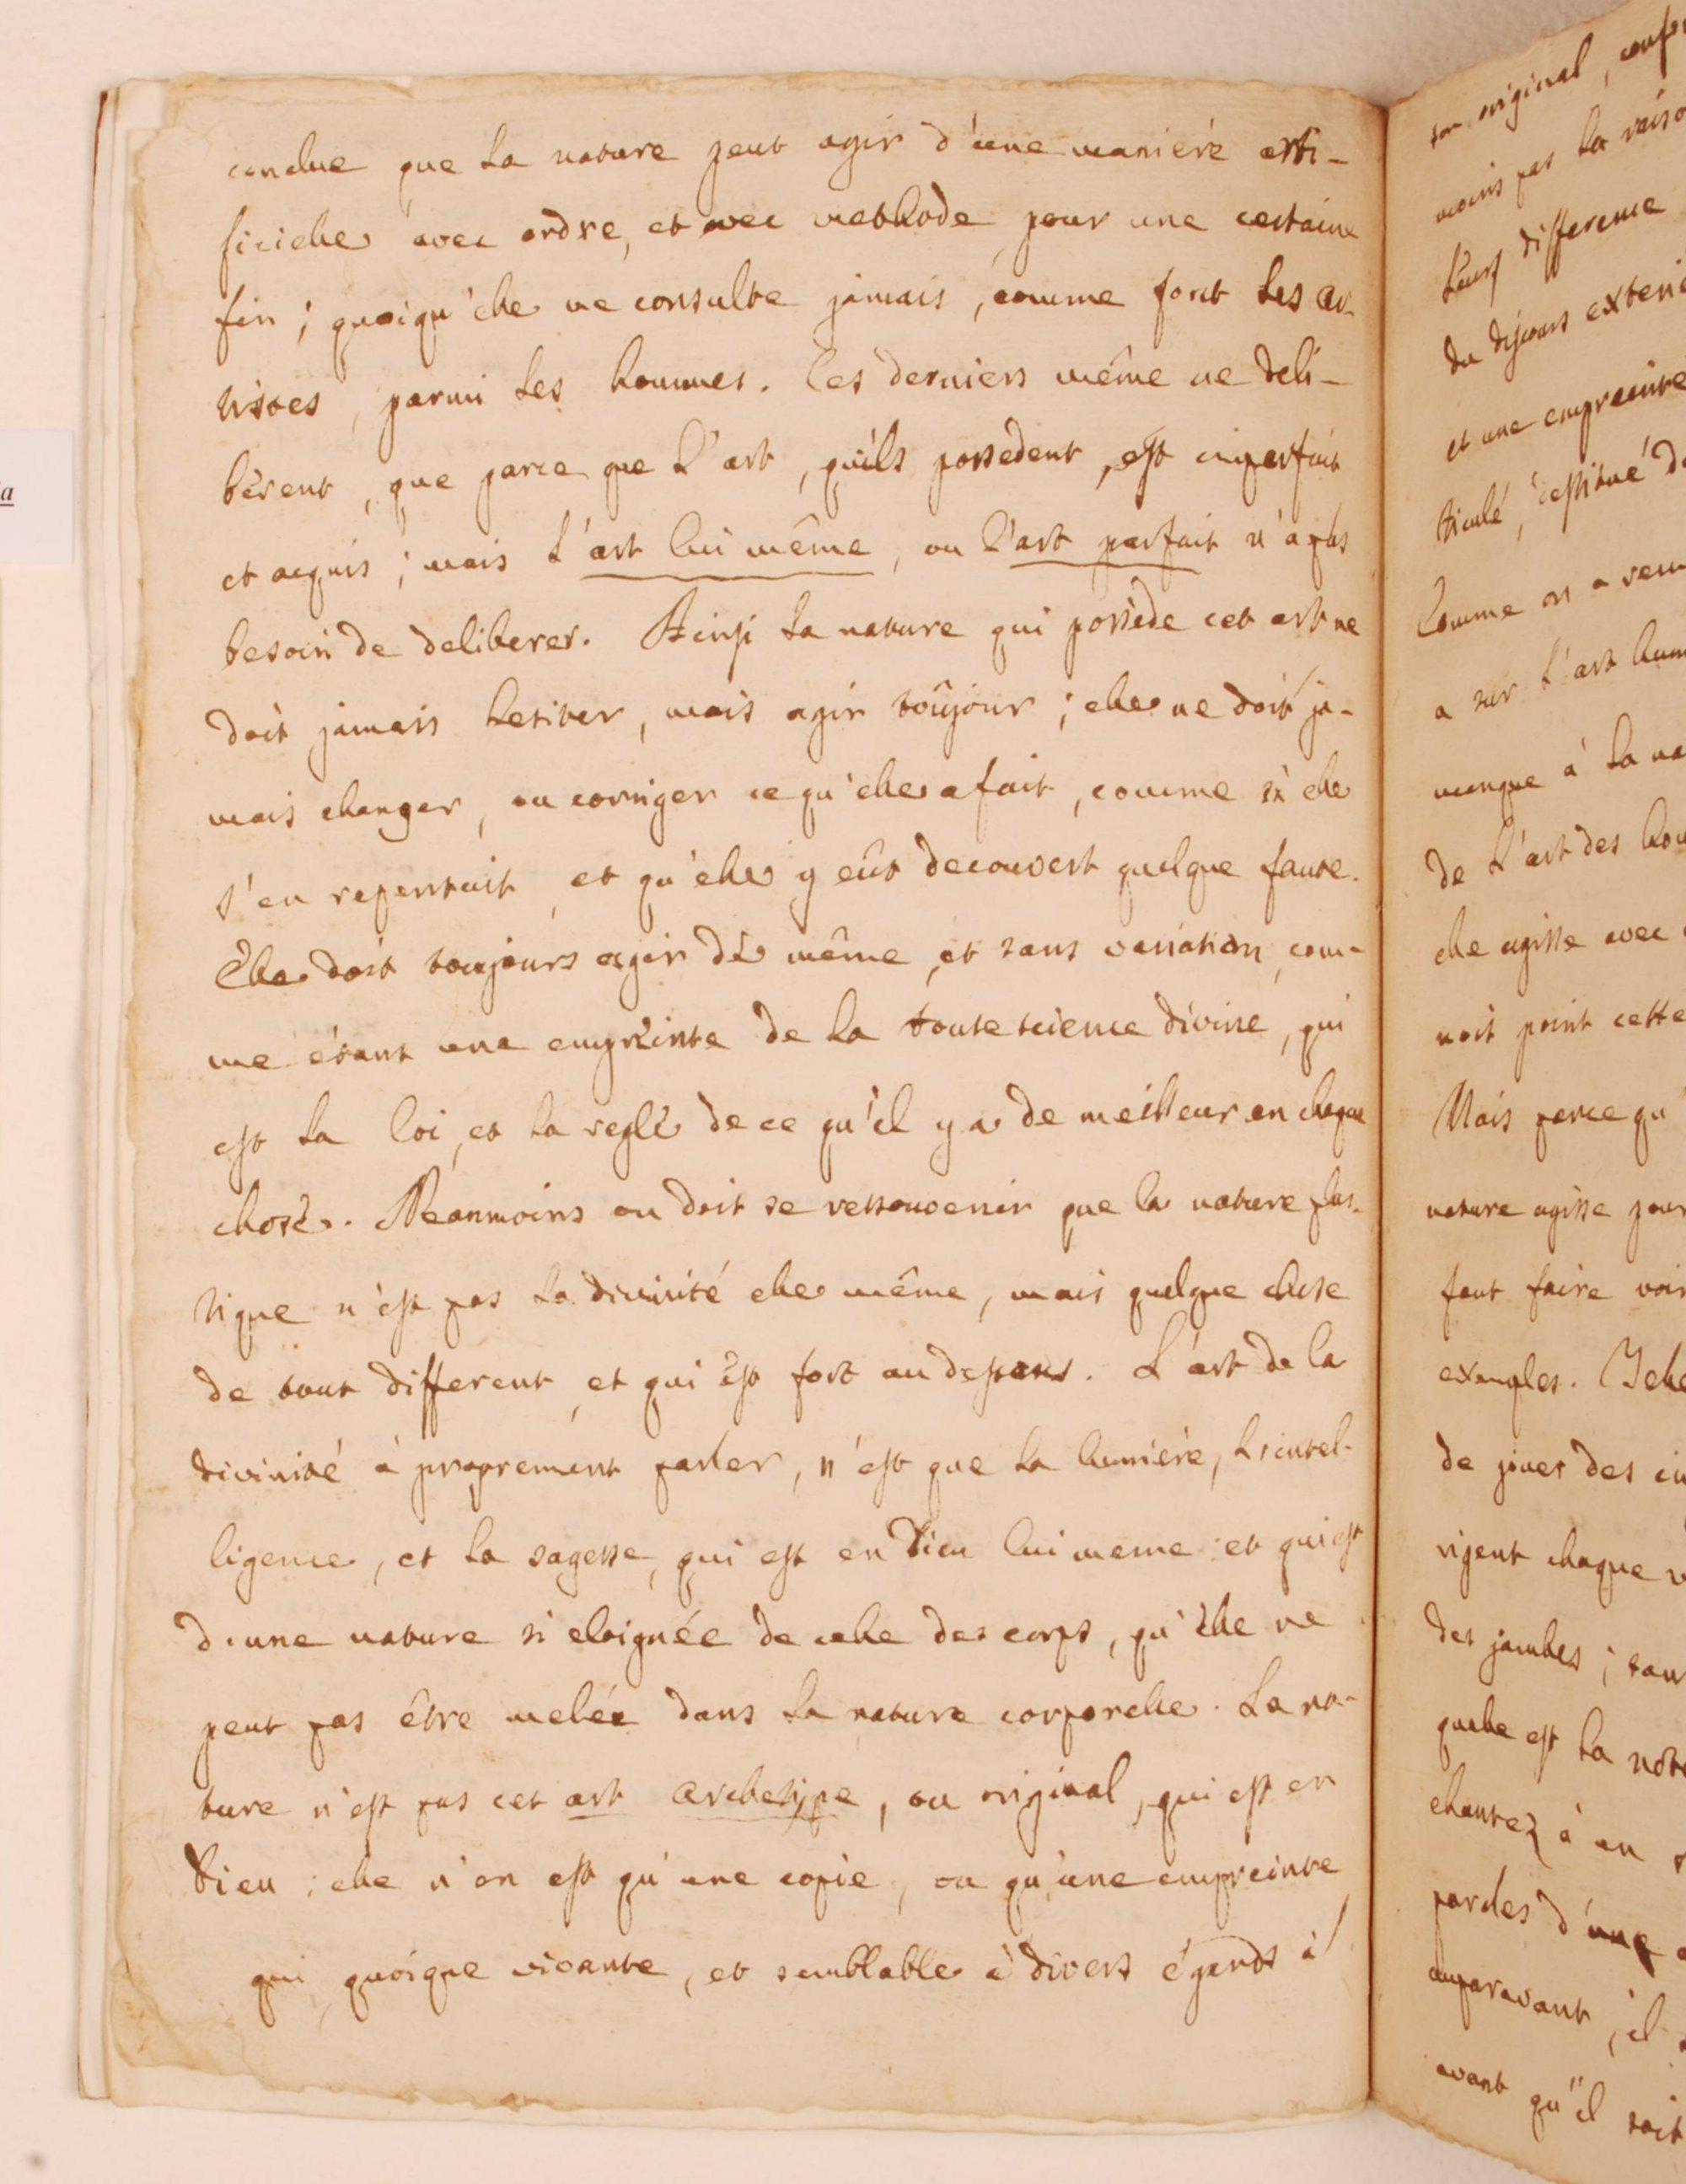 conclue que la nature peut agir d'une maniére arti-
ficielle avec ordre, et avec methode, pour une certaine
fin ; quoiqu'elle ne consulte jamais, comme font les ar-
tistes, parmi les hommes. Ces derniers même ne deli-
bérent, que parce que l'art, qu'ils possedent, est imparfait
et acquis ; mais l'art lui même, ou l'art parfait n'a pas
besoin de deliberer. Ainsi la nature qui possède cet art ne
doit jamais hesiter, mais agir toûjour ; elle ne doit ja-
mais changer, ou corriger ce qu'elle a fait, comme si elle
s'en repentait, et qu'elle y eût decouvert quelque faute.
Elle doit toujours agir de même, et sans variation, com-
me étant une empreinte de la toute science divine, qui
est la loi, et la regle de ce qu'il y a de meilleur en chaque
chose. Neanmoins on doit se ressouvenir que la nature plas-
tique n'est pas la divinité elle même, mais quelque chose
de tout different, et qui est fort au dessous. L'art de la
divinité à proprement parler, n'est que la lumiére, l'intel-
ligence, et la sagesse, qui est en Dieu lui meme et qui est
d'une nature si eloignée de celle des corps, qu'elle ne
peut pas être melée dans la nature corporelle. La na-
ture n'est pas cet art archetipe, ou original, qui est en
Dieu ; elle n'en est qu'une copie, ou qu'une empreinte
qui, quoique vivante, et semblable à divers égards à
son original,
moins pas la raiso
leurs difference
du discours exterie
et une empreinte
ticulé, destitué d
Comme on a
a sur l'art hum
manque à la na
de l'art des hom
elle agisse avec
noit point cette
Mais parce qu'
nature agisse pour
faut faire voir
exemples.
de jouer des in
rigent chaque
des jambes ; san
quelle est la note
chantez à un
paroles d'une
auparavant, il
avant qu'il soit